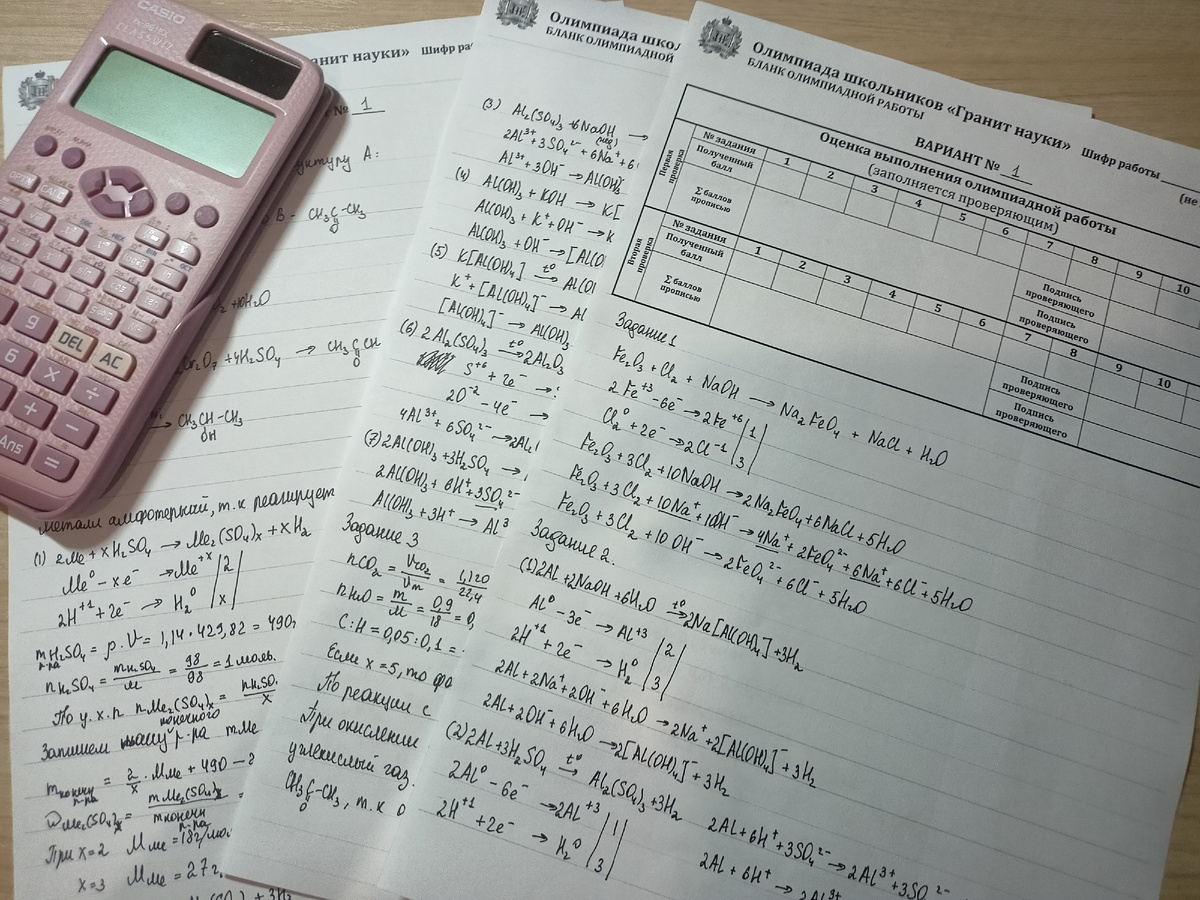 CASIO
CLASSWIZ
DEL
AC
9
6
×
÷
+
−
Ans
=
«Гранит науки» Шифр
№ 1
структуру А:
В – CH₃C–CH₃
O
+4H₂SO₄ → CH₃ C CH
O
→ CH₃CH–CH₃
OH
металл амфотерный, т.к реагирует
(1) 2Me + xH₂SO₄ → Me₂(SO₄)ₓ + xH₂
Me⁰ – xe⁻ → Me⁺ˣ | 2
2H⁺¹ + 2e⁻ → H₂⁰ | x
mH₂SO₄ = ρ · V = 1,14 · 429,82 = 490
р-ра
nH₂SO₄ = mH₂SO₄/M = 98/98 = 1 моль.
По у.х.р nMe₂(SO₄)ₓ = nH₂SO₄/x
конечного
Запишем массу р-ра mMe
mконечн р-ра = 2/x · MMe + 490 – 2
ωMe₂(SO₄)ₓ = mMe₂(SO₄)ₓ/mконечн р-ра =
При x=2 MMe = 18г/мо
x=3 MMe = 27г
Олимпиада школ
БЛАНК ОЛИМПИАДНОЙ
(3) Al₂(SO₄)₃ + 6NaOH →
2Al³⁺ + 3SO₄²⁻ + 6Na⁺ + 6
Al³⁺ + 3OH⁻ → Al(OH)₃
(4) Al(OH)₃ + KOH → K[
Al(OH)₃ + K⁺ + OH⁻ → K
Al(OH)₃ + OH⁻ → [Al(O
(5) K[Al(OH)₄] t° → Al(O
K⁺ + [Al(OH)₄]⁻ → Al
[Al(OH)₄]⁻ → Al(OH)₃
(6) 2Al₂(SO₄)₃ t° → 2Al₂O₃
S⁺⁶ + 2e⁻ →
2O⁻² – 4e⁻ →
4Al³⁺ + 6SO₄²⁻ → 2Al₂
(7) 2Al(OH)₃ + 3H₂SO₄ →
2Al(OH)₃ + 6H⁺ + 3SO₄²⁻
Al(OH)₃ + 3H⁺ → Al³
Задание 3
nCO₂ = VCO₂/Vm = 1,120/22,4
nH₂O = m/M = 0,9/18 = 0,
C:H = 0,05 : 0,1 =
Если x=5, то фо
По реакции с
При окислении
углекислый газ.
CH₃C–CH₃, т.к о
O
Олимпиада школьников «Гранит науки» Шифр работы
БЛАНК ОЛИМПИАДНОЙ РАБОТЫ (не
ВАРИАНТ № 1
Оценка выполнения олимпиадной работы
(заполняется проверяющим)
Первая проверка
№ задания 1 2 3 4 5 6 7 8 9 10
Полученный балл
Σ баллов прописью
Подпись проверяющего
Подпись проверяющего
Вторая проверка
№ задания 1 2 3 4 5 6 7 8 9 10
Полученный балл
Σ баллов прописью
Подпись проверяющего
Подпись проверяющего
Задание 1
Fe₂O₃ + Cl₂ + NaOH → Na₂FeO₄ + NaCl + H₂O
2Fe⁺³ – 6e⁻ → 2Fe⁺⁶ | 1
Cl₂⁰ + 2e⁻ → 2Cl⁻¹ | 3
Fe₂O₃ + 3Cl₂ + 10NaOH → 2Na₂FeO₄ + 6NaCl + 5H₂O
Fe₂O₃ + 3Cl₂ + 10Na⁺ + 10OH⁻ → 4Na⁺ + 2FeO₄²⁻ + 6Na⁺ + 6Cl⁻ + 5H₂O
Fe₂O₃ + 3Cl₂ + 10OH⁻ → 2FeO₄²⁻ + 6Cl⁻ + 5H₂O
Задание 2.
(1) 2Al + 2NaOH + 6H₂O t° → 2Na[Al(OH)₄] + 3H₂
Al⁰ – 3e⁻ → Al⁺³ | 2
2H⁺¹ + 2e⁻ → H₂⁰ | 3
2Al + 2Na⁺ + 2OH⁻ + 6H₂O → 2Na⁺ + 2[Al(OH)₄]⁻ + 3H₂
2Al + 2OH⁻ + 6H₂O → 2[Al(OH)₄]⁻ + 3H₂
(2) 2Al + 3H₂SO₄ t° → Al₂(SO₄)₃ + 3H₂
2Al⁰ – 6e⁻ → 2Al⁺³ | 1
2H⁺¹ + 2e⁻ → H₂⁰ | 3
2Al + 6H⁺ + 3SO₄²⁻ → 2Al³⁺ + 3SO₄²⁻
2Al + 6H⁺ → 2Al³⁺